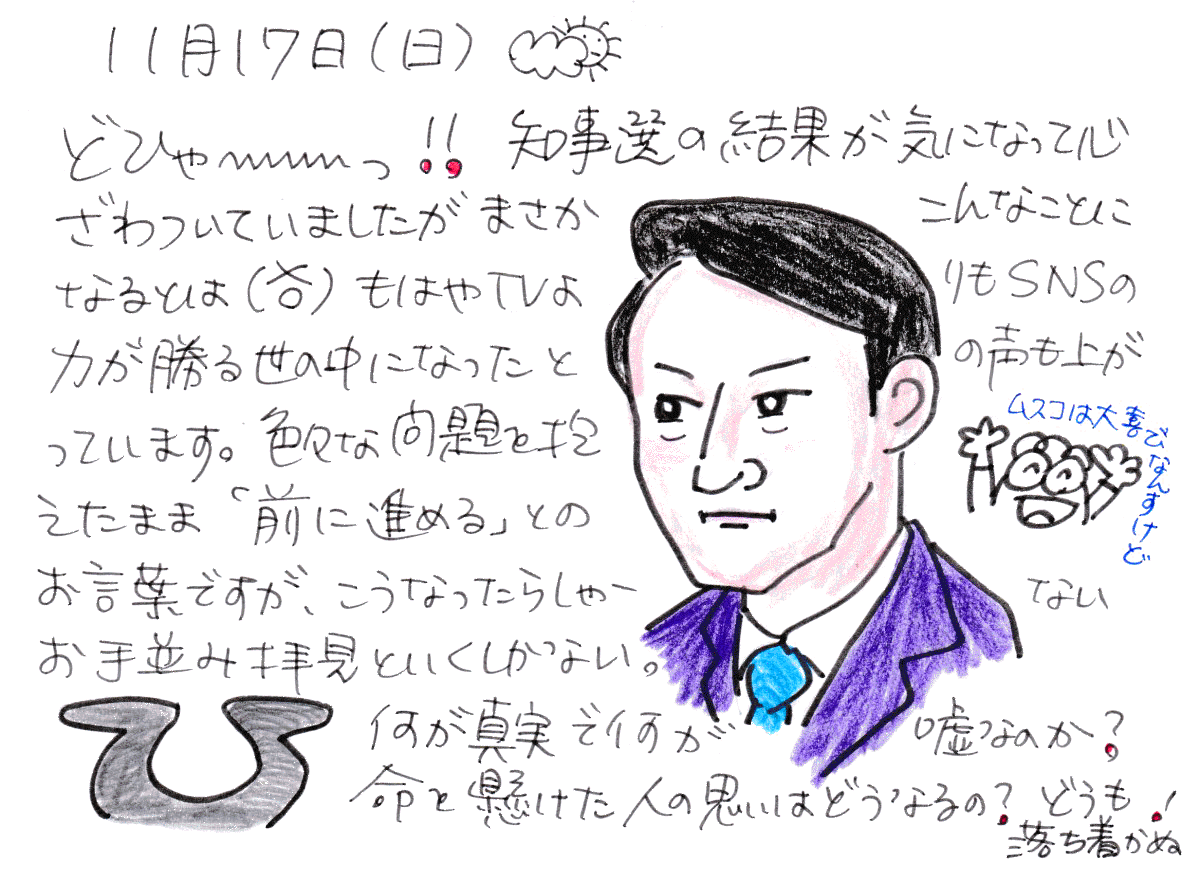 11月17日(日)
どひゃーーーっ!! 知事選の結果が気になって心
ざわついていましたがまさか こんなことに
なるとは(谷) もはやTVよ りもSNSの
力が勝る世の中になったと の声も上が
っています。色々な問題を抱
えたまま「前に進める」との
お言葉ですが、こうなったらしゃー ない
お手並み拝見といくしかない。
何が真実で何が 嘘なのか?
命を懸けた人の思いはどうなるの?どうも!
落ち着かぬ
ムスコは大喜びなんすけど
ひ